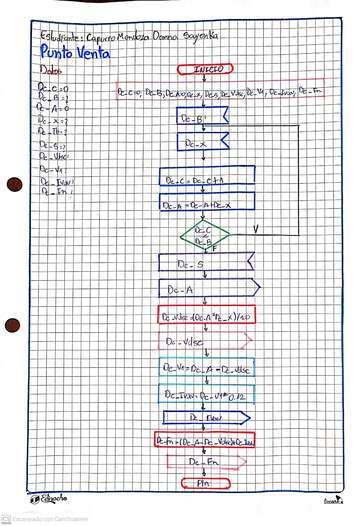 Estudiante: Capurro Mendoza Danna Sayenka
Punto Venta
Datos
Dc_C=0
Dc_B=?
Dc_A=0
Dc_x=?
Dc_S=?
Dc_Vdsc
Dc_V1
Dc_Ivav:
Dc_Fn:
INICIO
Dc_C=0, Dc_B, Dc_A=0, Dc_x, Dc_S, Dc_Vdsc, Dc_V1, Dc_Ivav, Dc_Fn
Dc_B
Dc_x
Dc_C=Dc_C+1
Dc_A=Dc_A+Dc_x
Dc_C
Dc_B
V
F
Dc_S
Dc_A
Dc_Vdsc
Dc_V1=Dc_A-Dc_Vdsc
Dc_Ivav=Dc_V1*0.12
Dc_Ivav
Dc_Fn
Fin
Escaneado con CamScanner